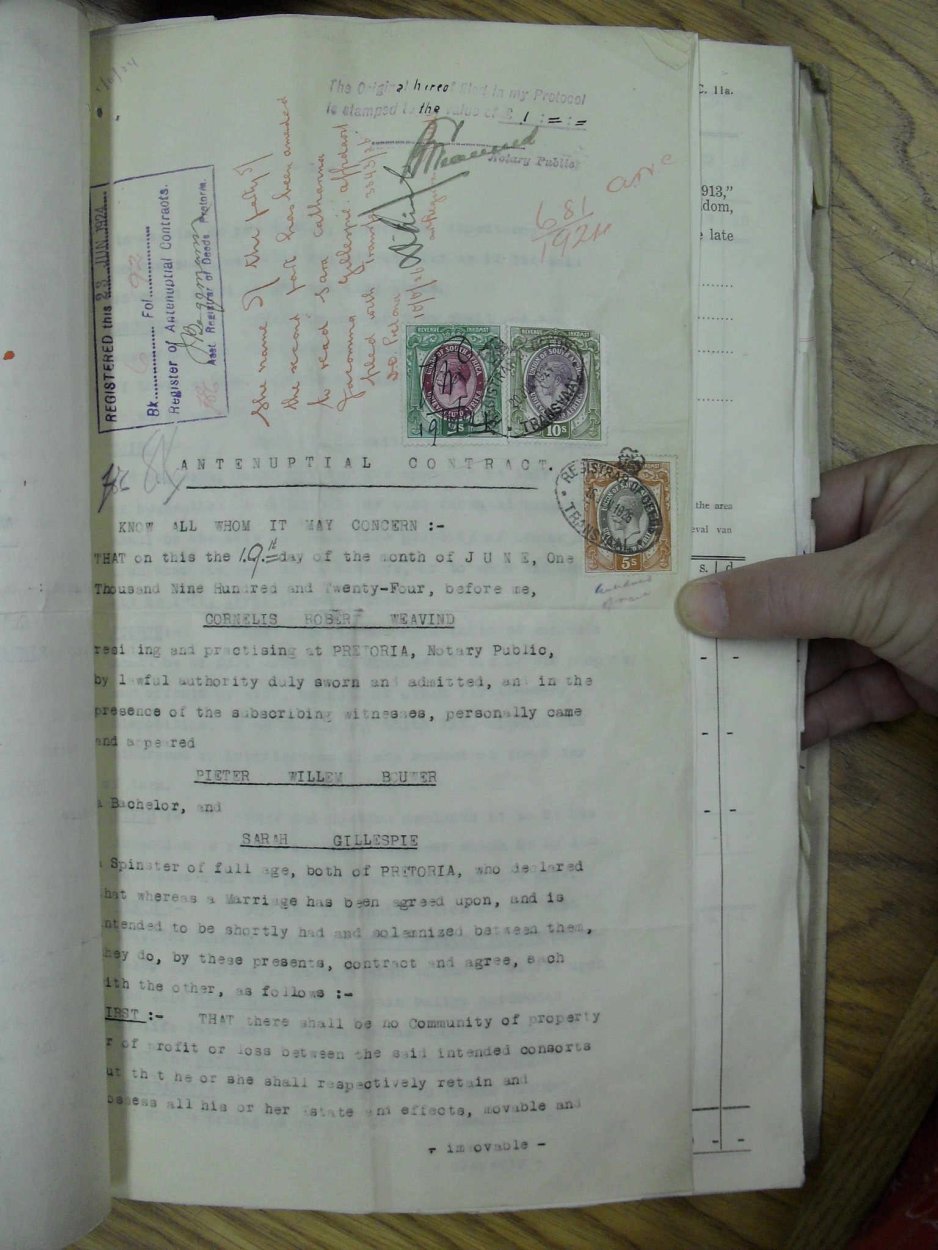 The Original hereof filed in my Protocol
is stamped to the value of £ 1 : = : =
Notary Public
REGISTERED this 23 JUN 1924
Bk. Fol.
Register of Antenuptial Contracts.
Asst Registrar of Deeds Pretoria.
The name of the party of
the second part has been amended
to read Sara Catharina
Jacomina Gillespie.
filed with
681/1924
REVENUE INKOMST
UNION OF SOUTH AFRICA
2s
REVENUE INKOMST
UNION OF SOUTH AFRICA
10s
TRANSVAAL
REGISTRAR OF DEEDS
TRANSVAAL
5s
ANTENUPTIAL CONTRACT.
KNOW ALL WHOM IT MAY CONCERN :-
THAT on this the 19th day of the month of JUNE, One
Thousand Nine Hundred and Twenty-Four, before me,
CORNELIS ROBERT WEAVIND
residing and practising at PRETORIA, Notary Public,
by lawful authority duly sworn and admitted, and in the
presence of the subscribing witnesses, personally came
and appeared
PIETER WILLEM BOUWER
a Bachelor, and
SARAH GILLESPIE
Spinster of full age, both of PRETORIA, who declared
that whereas a Marriage has been agreed upon, and is
ntended to be shortly had and solemnized between them,
hey do, by these presents, contract and agree, each
ith the other, as follows :-
IRST :- THAT there shall be no Community of property
r of profit or loss between the said intended consorts
ut that he or she shall respectively retain and
ossess all his or her estate and effects, movable and
- immovable -
C. 11a.
1913,"
dom,
e late
the area
eval van
s. d